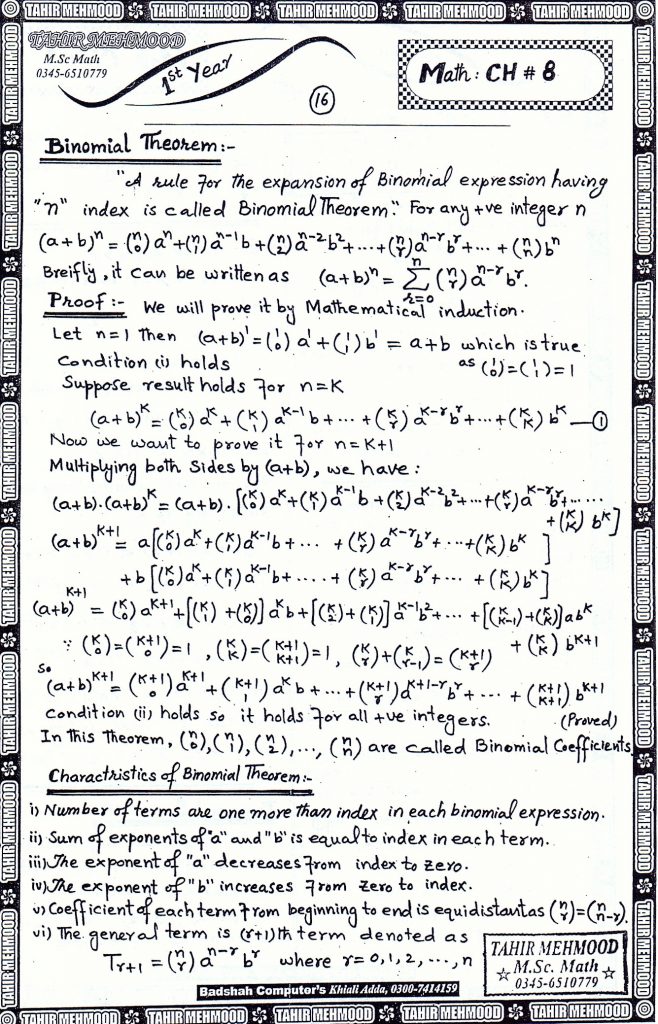 TAHIR MEHMOOD TAHIR MEHMOOD TAHIR MEHMOOD TAHIR MEHMOOD TAHIR MEHMOOD
TAHIR MEHMOOD
M.Sc Math
0345-6510779
1st Year
16
Math: CH # 8
Binomial Theorem:-
"A rule for the expansion of Binomial expression having
"n" index is called Binomial Theorem." For any +ve integer n
(a+b)ⁿ = (n 0) aⁿ + (n 1) aⁿ⁻¹b + (n 2) aⁿ⁻²b² + ... + (n r) aⁿ⁻ʳbʳ + ... + (n n) bⁿ
Breifly, it can be written as (a+b)ⁿ = Σ_{r=0}^{n} (n r) aⁿ⁻ʳ bʳ.
Proof:- We will prove it by Mathematical induction.
Let n=1 Then (a+b)¹ = (1 0) a¹ + (1 1) b¹ = a+b which is true
Condition (i) holds as (1 0) = (1 1) = 1
Suppose result holds for n=K
(a+b)^K = (K 0) a^K + (K 1) a^{K-1} b + ... + (K r) a^{K-r} b^r + ... + (K K) b^K —①
Now we want to prove it for n=K+1
Multiplying both sides by (a+b), we have:
(a+b).(a+b)^K = (a+b). [(K 0) a^K + (K 1) a^{K-1} b + (K 2) a^{K-2} b² + ... + (K r) a^{K-r} b^r + ......
+ (K K) b^K]
(a+b)^{K+1} = a[(K 0) a^K + (K 1) a^{K-1} b + ... + (K r) a^{K-r} b^r + ... + (K K) b^K ]
+ b [(K 0) a^K + (K 1) a^{K-1} b + .... + (K r) a^{K-r} b^r + ... + (K K) b^K]
(a+b)^{K+1} = (K 0) a^{K+1} + [(K 1) + (K 0)] a^K b + [(K 2) + (K 1)] a^{K-1} b² + ... + [(K K-1) + (K K)] a b^K
+ (K K) b^{K+1}
∵ (K 0) = (K+1 0) = 1 , (K K) = (K+1 K+1) = 1, (K r) + (K r-1) = (K+1 r)
so
(a+b)^{K+1} = (K+1 0) a^{K+1} + (K+1 1) a^K b + ... + (K+1 r) a^{K+1-r} b^r + ... + (K+1 K+1) b^{K+1}
condition (ii) holds so it holds for all +ve integers. (Proved)
In this Theorem, (n 0), (n 1), (n 2), ..., (n n) are called Binomial Coefficients
Charactristics of Binomial Theorem:-
i) Number of terms are one more than index in each binomial expression.
ii) Sum of exponents of "a" and "b" is equal to index in each term.
iii) The exponent of "a" decreases from index to zero.
iv) The exponent of "b" increases from zero to index.
v) Coefficient of each term from beginning to end is equidistant as (n r) = (n n-r).
vi) The general term is (r+1)th term denoted as
T_{r+1} = (n r) a^{n-r} b^r where r=0,1,2, ..., n
TAHIR MEHMOOD
M.Sc. Math
0345-6510779
Badshah Computer's Khiali Adda, 0300-7414159
TAHIR MEHMOOD TAHIR MEHMOOD TAHIR MEHMOOD TAHIR MEHMOOD TAHIR MEHMOOD